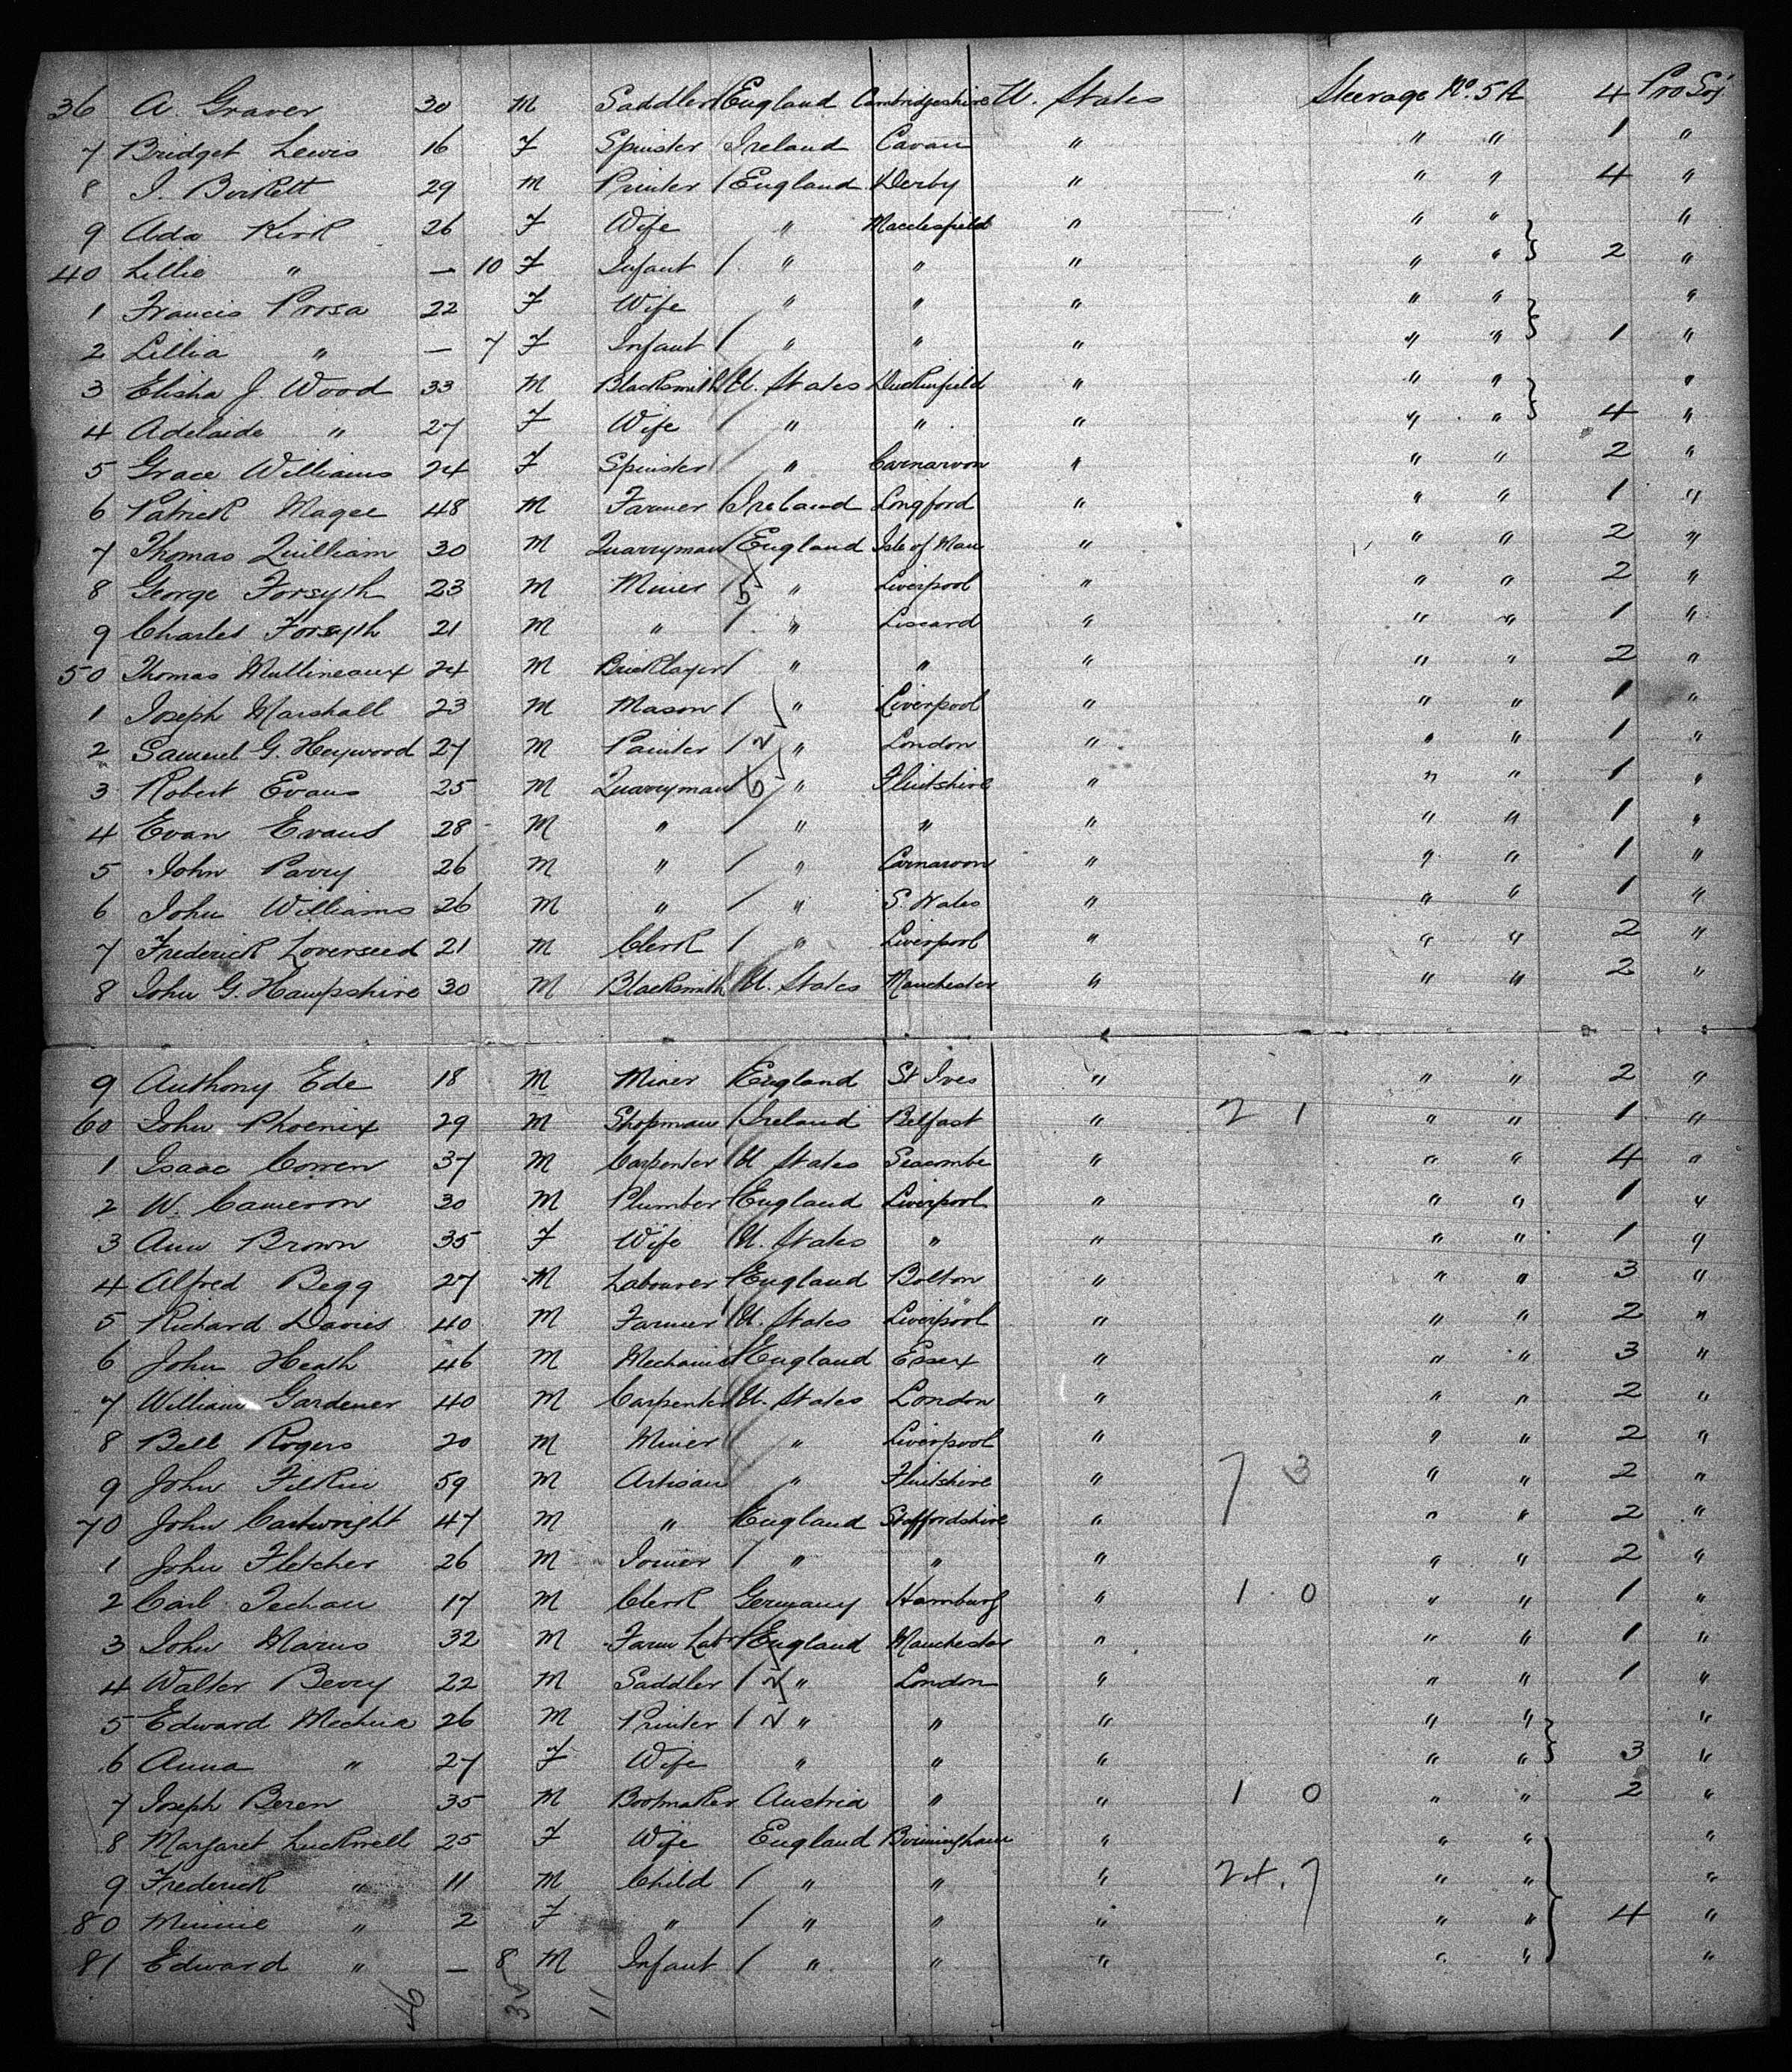 36 A. Graver 30 M Saddler England Cambridgeshire U. States Steerage No. 5 A 4 Pro Soj
7 Bridget Lewis 16 F Spinster Ireland Cavan " " " 1 "
8 I. Birkett 29 M Printer England Derby " " " 4 "
9 Ada Kirk 26 F Wife " Macclesfield " " " "
40 Lillie " — 10 F Infant " " " " " 2 "
1 Francis Prosa 22 F Wife " " " " " "
2 Lillia " — 7 F Infant " " " " " 1 "
3 Elisha J. Wood 33 M Blacksmith U. States Duckinfield " " " "
4 Adelaide " 27 F Wife " " " " " 4 "
5 Grace Williams 24 F Spinster " Carnarvon " " " 2 "
6 Patrick Magee 48 M Farmer Ireland Longford " " " 1 "
7 Thomas Quilliam 30 M Quarryman England Isle of Man " " " 2 "
8 George Forsyth 23 M Miner 5 " Liverpool " " " 2 "
9 Charles Forsyth 21 M " " Liscard " " " 1 "
50 Thomas Mullineaux 24 M Bricklayer " " " " " 2 "
1 Joseph Marshall 23 M Mason " Liverpool " " " 1 "
2 Samuel G. Heywood 27 M Painter 2 " London " " " 1 "
3 Robert Evans 25 M Quarryman 6 " Flintshire " " " 1 "
4 Evan Evans 28 M " " " " " " 1 "
5 John Parry 26 M " " Carnarvon " " " 1 "
6 John Williams 26 M " " S. Wales " " " 1 "
7 Frederick Loverseed 21 M Clerk " Liverpool " " " 2 "
8 John G. Hampshire 30 M Blacksmith U. States Manchester " " " 2 "
9 Anthony Ede 18 M Miner England St Ives " " " 2 "
60 John Phoenix 29 M Shopman Ireland Belfast " 2 1 " " 1 "
1 Isaac Cowen 37 M Carpenter U States Seacombe " " " 4 "
2 W. Cameron 30 M Plumber England Liverpool " " " 1 "
3 Ann Brown 35 F Wife U. States " " " " 1 "
4 Alfred Begg 27 M Labourer England Bolton " " " 3 "
5 Richard Davies 40 M Farmer U. States Liverpool " " " 2 "
6 John Heath 46 M Mechanic England Essex " " " 3 "
7 William Gardener 40 M Carpenter U. States London " " " 2 "
8 Bell Rogers 20 M Miner " Liverpool " " " 2 "
9 John Filkin 59 M Artisan " Flintshire " 7 3 " " 2 "
70 John Cartwright 47 M " England Staffordshire " " " 2 "
1 John Fletcher 26 M Joiner " " " " " 2 "
2 Carl Techau 17 M Clerk Germany Hamburg " 1 0 " " 1 "
3 John Marus 32 M Farm Lab England Manchester " " " 1 "
4 Walter Berry 22 M Saddler 2 " London " " " 1 "
5 Edward 26 M Printer 2 " " " " " "
6 Anna " 27 F Wife " " " " " 3 "
7 Joseph Beren 35 M Bootmaker Austria " " 1 0 " " 2 "
8 Margaret Luckwell 25 F Wife England Birmingham " " " "
9 Frederick " 11 M Child " " " 24 7 " " "
80 Minnie " 2 F " " " " " " 4 "
81 Edward " — 8 M Infant " " " " " "
46 11